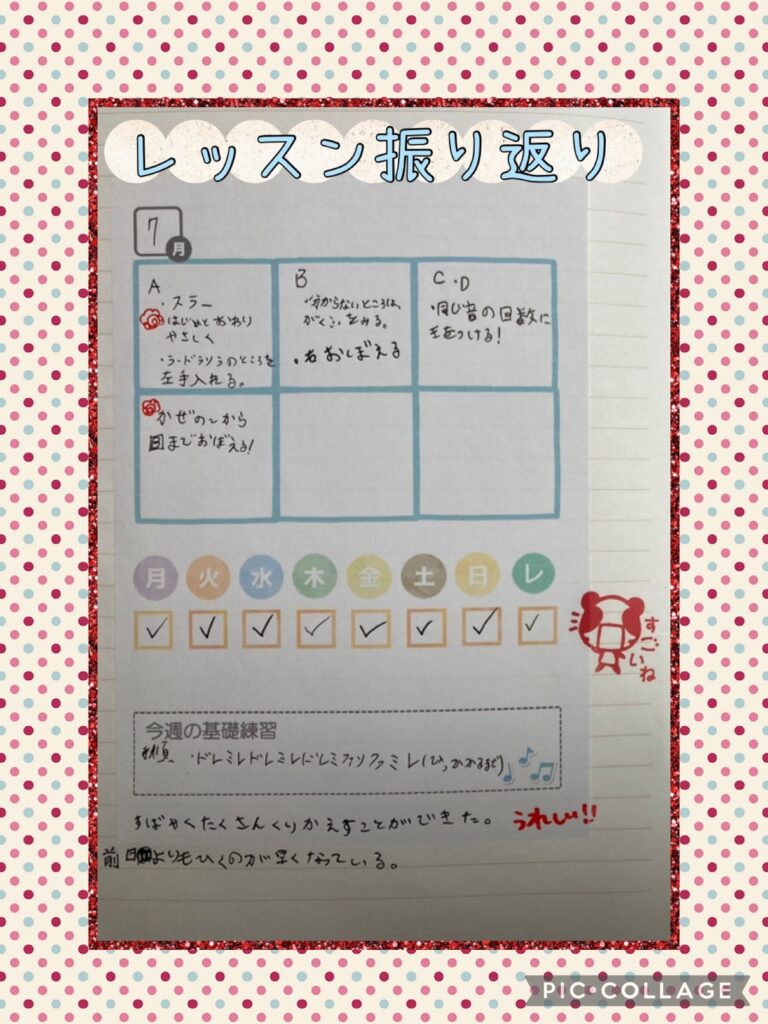 レッスン振り返り
7
月
A
・スラー
はじめとおわり
やさしく
・ラードラソラのところを
左手入れる。
B
・分からないところは、
がくふをみる。
・右おぼえる
C・D
・同じ音の回数に
気をつける!
かぜの〜から
回までおぼえる!
月 火 水 木 金 土 日 レ
すごいね
今週の基礎練習
・ドレミレドレミレドレミファソファミレ(ひっかかるまで)
すばやくたくさんくりかえすことができた。 うれしい!!
前日よりもひくのが早くなっている。
PIC•COLLAGE